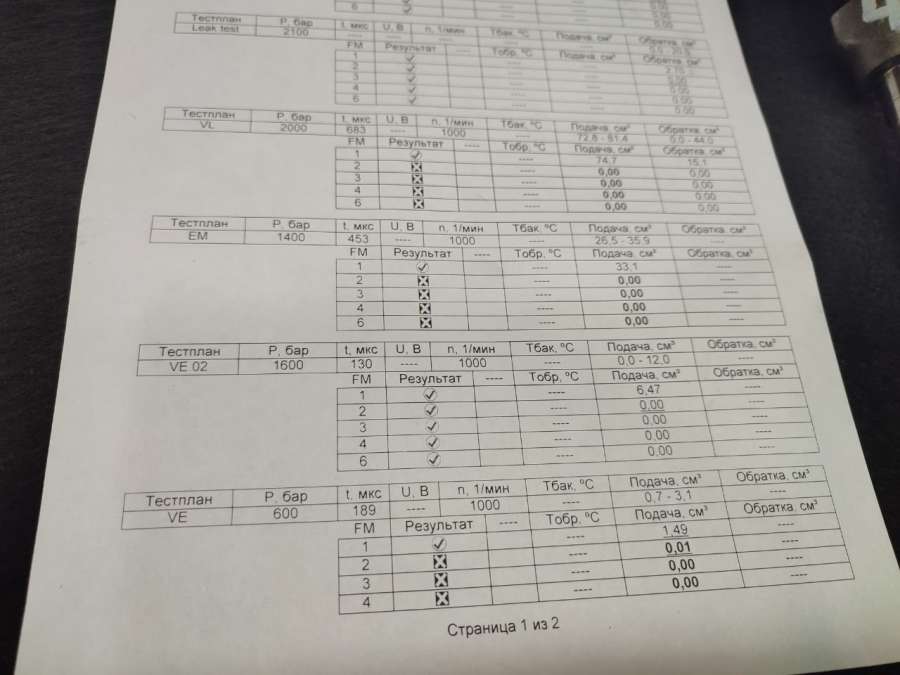 6 0.00
0.00
Тестплан P, бар t, мкс U, В n, 1/мин Тбак, ºС Подача, см³ Обратка, см³
Leak test 2100 ---- ---- ---- ----
FM Результат ---- Тобр, ºС Подача, см³ Обратка, см³
1 ----
2 ---- 0.00
3 ---- 0.00
4 ---- 0.00
6 ---- 0.00
Тестплан P, бар t, мкс U, В n, 1/мин Тбак, ºС Подача, см³ Обратка, см³
VL 2000 683 ---- 1000 ---- 72.8 - 81.4 0.0 - 44.0
FM Результат ---- Тобр, ºС Подача, см³ Обратка, см³
1 ---- 74.7 15.1
2 ---- 0,00 0.00
3 ---- 0,00 0.00
4 ---- 0,00 0.00
6 ---- 0,00 0.00
Тестплан P, бар t, мкс U, В n, 1/мин Тбак, ºС Подача, см³ Обратка, см³
EM 1400 453 ---- 1000 ---- 26,5 - 35,9 ----
FM Результат ---- Тобр, ºС Подача, см³ Обратка, см³
1 ---- 33,1 ----
2 ---- 0,00 ----
3 ---- 0,00 ----
4 ---- 0,00 ----
6 ---- 0,00 ----
Тестплан P, бар t, мкс U, В n, 1/мин Тбак, ºС Подача, см³ Обратка, см³
VE 02 1600 130 ---- 1000 ---- 0,0 - 12,0 ----
FM Результат ---- Тобр, ºС Подача, см³ Обратка, см³
1 ---- 6,47 ----
2 ---- 0,00 ----
3 ---- 0,00 ----
4 ---- 0,00 ----
6 ---- 0,00 ----
Тестплан P, бар t, мкс U, В n, 1/мин Тбак, ºС Подача, см³ Обратка, см³
VE 600 189 ---- 1000 ---- 0,7 - 3,1 ----
FM Результат ---- Тобр, ºС Подача, см³ Обратка, см³
1 ---- 1,49 ----
2 ---- 0,01 ----
3 ---- 0,00 ----
4 ---- 0,00 ----
Страница 1 из 2